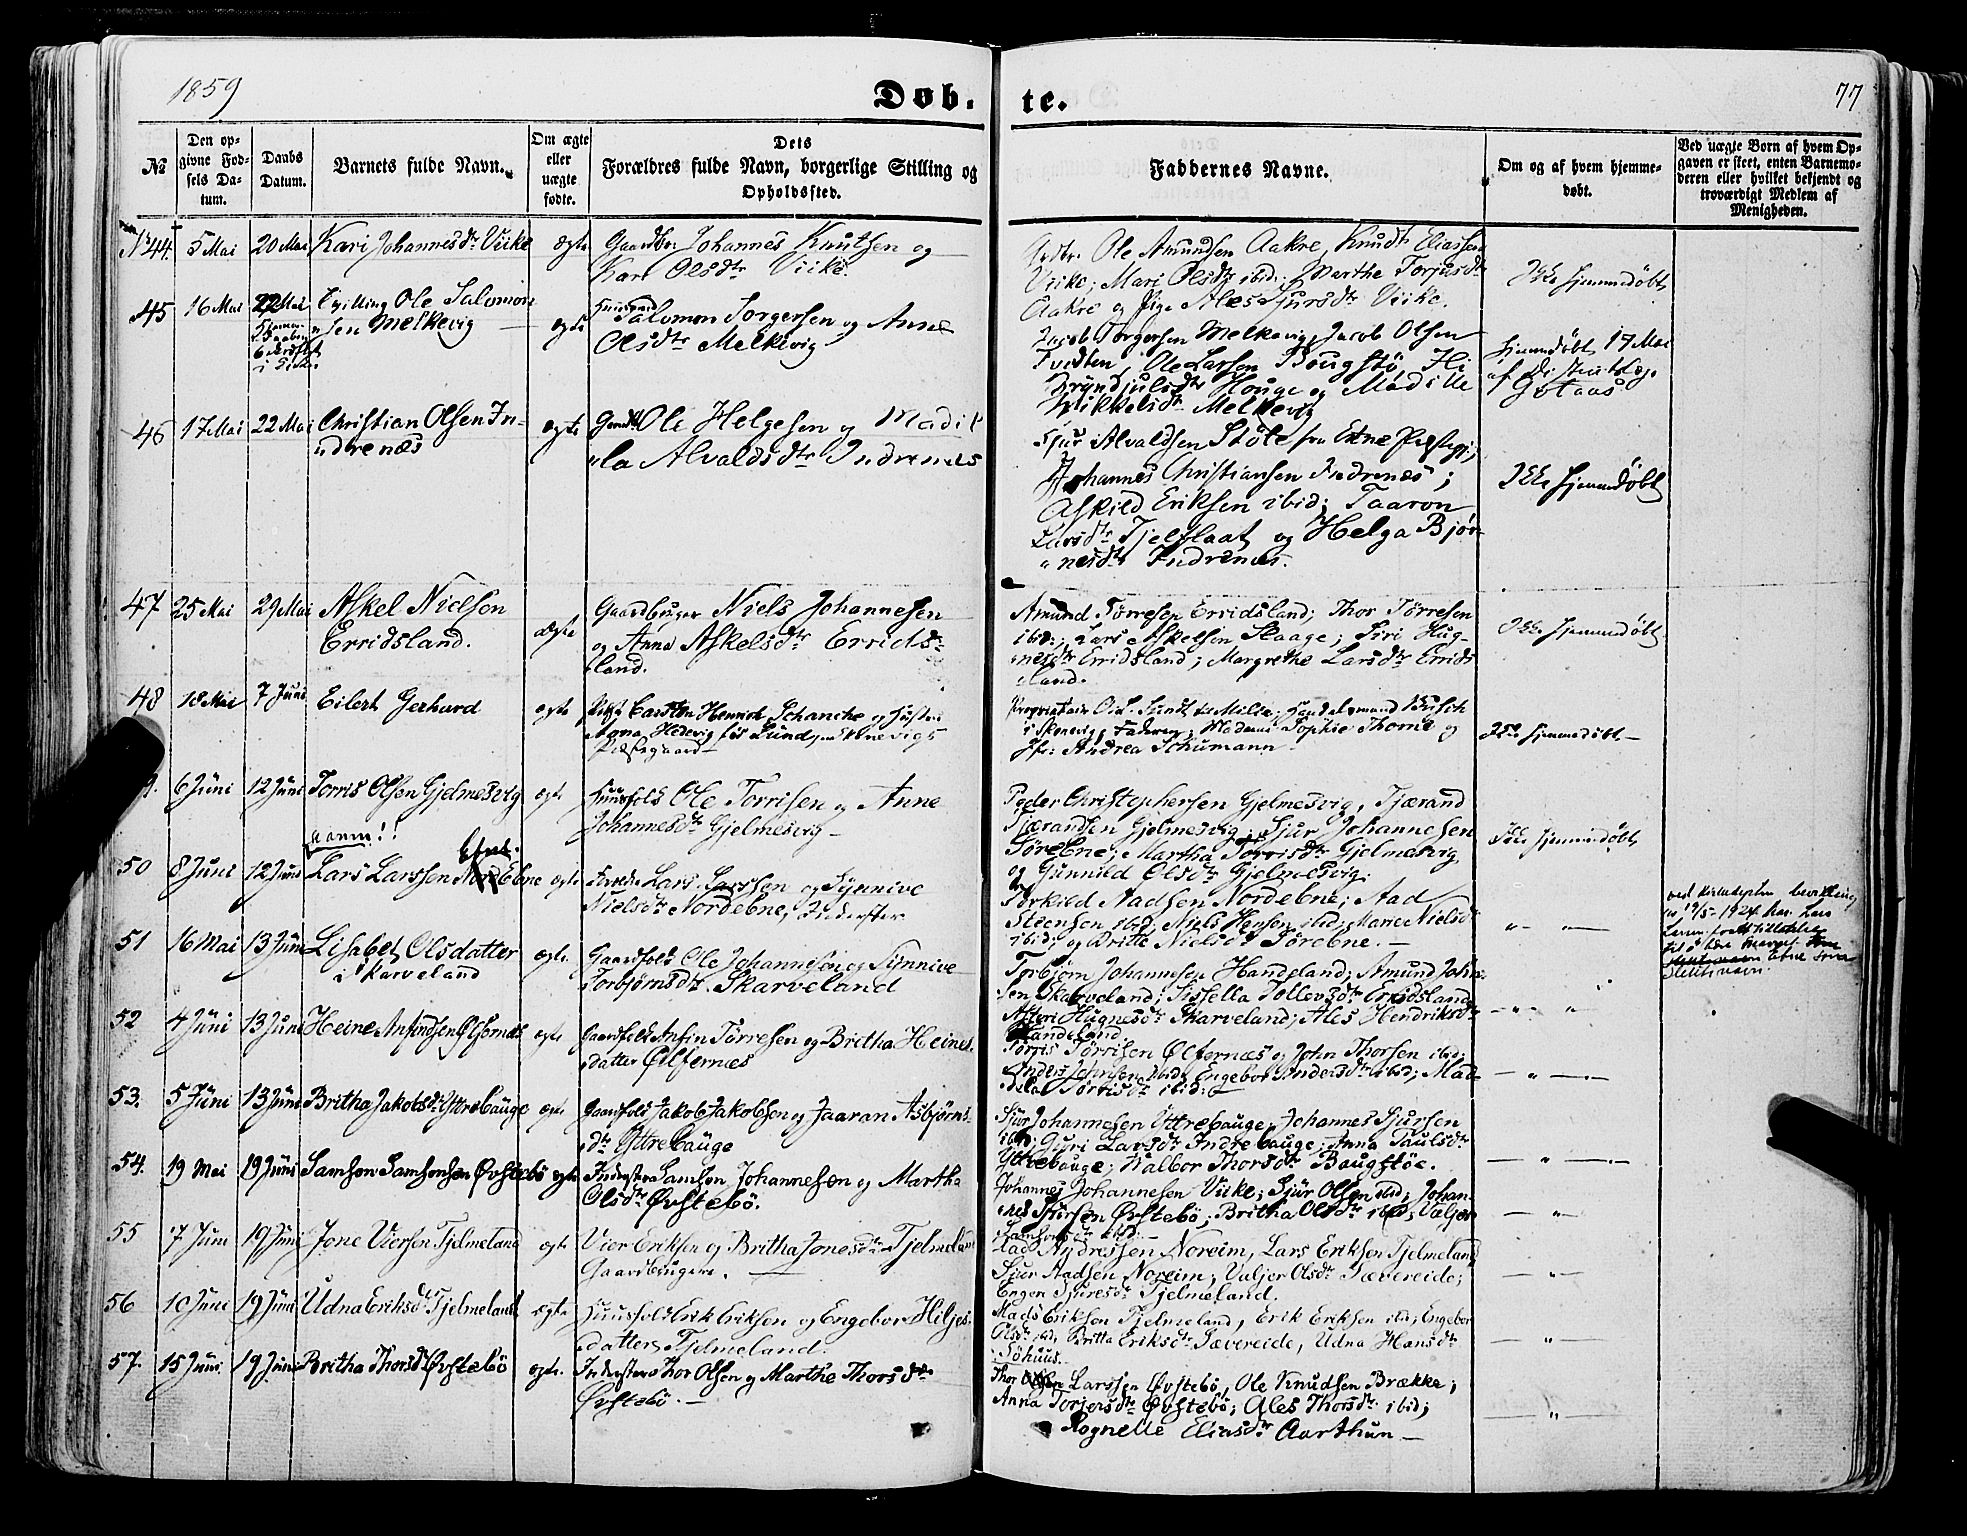 1859
Døb-
te.
77
№
Den op-
givne Fød-
sels Da-
tum.
Daabs
Datum.
Barnets fulde Navn.
Om ægte
eller
uægte
fødte.
Dets
Forældres fulde Navn, borgerlige Stilling og
Opholdssted.
Faddernes Navne.
Om og af hvem hjemme-
døbt.
Ved uægte Børn af hvem Op-
gaven er skeet, enten Barnemo-
deren eller hvilket bekjendt og
troværdigt Medlem af
Menigheden.
No 44. 5 Mai 20 Mai Kari Johannesdtr Viike ægte Gaardbr. Johannes Knutsen og
Kari Olsdtr Viike.
Ole Amundsen Aakre, Knudt Eliassen
Viike, Mari Olsdtr ibid; Marthe Torjusdtr
Aakre og Pige Ales Sjursdtr Viike.
Ikke hjemmedøbt
45 16 Mai 22 Mai Tvilling Ole Salomon-
sen Melkevig
ægte
Salomon Torgersen og Anne
Olsdtr Melkevig
Jacob Torgersen Melkevig, Jacob Olsen
Tvedten, Ole Larsen Bougstø,
Houge og Madille
Mikkelsdtr Melkevig
hjemmedøbt 17 Mai
af
Gotaas
46 17 Mai 22 Mai Christian Olsen In-
drenæs
ægte Ole Helgesen og Madil-
la Alvaldsdtr Indrenæs
Sjur Alvaldsen Støle fra Etne Præstegj;
Johannes Christiansen Indrenæs;
Askild Eriksen ibid; Taaron
Larsdtr Tjelflaat og Helga Bjør-
nesdtr Indrenæs.
Ikke hjemmedøbt
47 25 Mai 29 Mai Askel Nielsen
Erridsland.
ægte
Gaardbruger Niels Johannesen
og Anna Askelsdtr Errids-
land.
Amund Tørresen Erridsland; Thor Tørresen
ibid; Lars Askelsen Skaage; Siri Hug-
nesdtr Erridsland; Margrethe Larsdtr Errids-
land.
Ikke hjemmedøbt
48 18 Mai 7 Juni Eilert Gerhard ægte Carsten Henrich Schanche og Hustru
Anna Hedevig født Lund, paa Skonevigs
Præstegaard
Proprietair Ole Sundt Milde, Handelsmand Busch
i Skonevig, Faderen; Madame Sophie Thome og
Jfr. Andrea Schumann
Ikke hjemmedøbt
6 Juni 12 Juni Torris Olsen Gjelmesvig ægte Huusfolk Ole Torrisen og Anne
Johannesdtr Gjelmesvig
Peder Christophersen Gjelmesvig, Tjærand
Tjærandsen Gjelmesvig; Sjur Johannesen
Sørebne; Martha Torrisdtr Gjelmesvig
og Gunnild Olsdtr Gjelmesvig.
Ikke hjemmedøbt
navn!!
50 8 Juni 12 Juni Lars Larssen Nord Ebne ægte Lars Larssen og Synnive
Nielsdtr Nordebne, Inderster
Torkild Aadsen Nordebne; Aad
Steensen ibid; Niels Hansen ibid; Marie Nielsdtr
ibid; og Britte Nielsdtr Sørebne.
19/5-1924 har Lars
Larsen
Ebne som
slektsnavn.
51 16 Mai 13 Juni Lisabet Olsdatter
Skarveland
ægte Gaardfolk Ole Johannesen og Synnive
Torbjørnsdtr. Skarveland
Torbjørn Johannesen Handeland; Amund Johan-
sen Skarveland; Sissella Tollevsdtr Erridsland;
Hugnesdtr Skarveland; Ales Hendriksdtr
Handeland
52 4 Juni 13 Juni Heine Anfindsen Ølfernæs ægte Gaardfolk Anfin Tørresen og Britha Heines-
datter Ølfernæs
Torris Tørrisen Ølfernæs og John Thorsen ibid;
Anders Johnsen ibid; Engebor Andersdtr ibid; Mad-
dela Torrisdtr ibid:
53. 5 Juni 13 Juni Britha Jakobsdtr Yttrebauge ægte Gaardfolk Jakob Jakobsen og Jaaran Asbjørns-
dtr Yttrebauge
Sjur Johannesen Yttrebauge, Johannes Sjursen
ibid; Guri Larsdtr Indrebauge; Anna Paulsdtr
Yttrebauge; Walbor Thorsdtr Baugstøe.
54. 19 Mai 19 Juni Samson Samsonsen Øvstebø ægte Inderstre Samson Johannesen og Martha
Olsdtr Øvstebø.
Johannes Johannesen Viike; Sjur Olsen ibid; Johan-
nes Sjursen Øvstebø; Britha Olsdtr ibid; Valjer
Samsonsdtr ibid:
55 7 Juni 19 Juni Jone Viersen Tjelmeland ægte Vier Eriksen og Britha Jonesdtr Tjelmeland
Gaardbrugere.
Aad Andressen Noreim, Lars Eriksen Tjelmeland,
Sjur Aadsen Noreim; Valjer Olsdtr Sævereide;
Engen Sjuresdtr Tjelmeland.
56 10 Juni 19 Juni Udna Eriksdtr Tjelmeland ægte Huusfolk Erik Eriksen og Engebor Hiljes-
datter Tjelmeland.
Mads Eriksen Tjelmeland, Erik Eriksen ibid; Engebor
Olsdtr ibid, Britta Eriksdtr Sævereide, Udna Hansdtr
Søhuus.
57. 15 Juni 19 Juni Britha Thorsdtr Øvstebø ægte. Inderstre Thor Olsen og Marthe Thorsdtr
Øvstebø.
Thor Larssen Øvstebø, Ole Knudsen Brække;
Anna Torjersdtr Øvstebø; Ales Thorsdtr ibid;
Rognelle Eliasdtr Aarthun